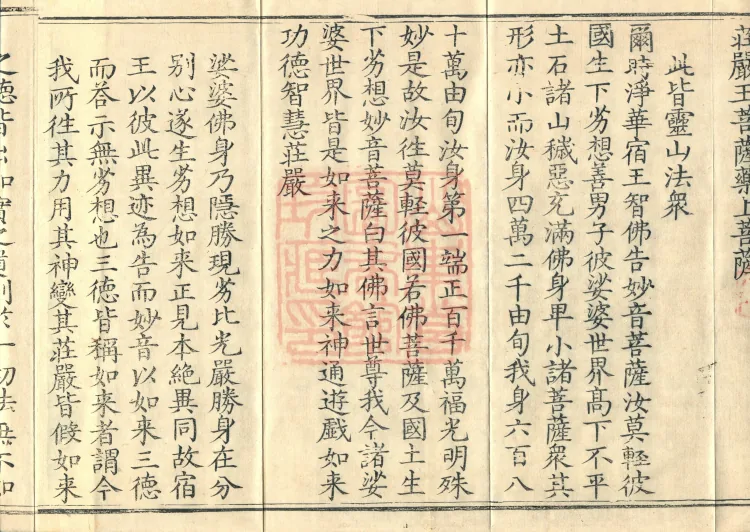 莊嚴王菩薩藥上菩薩
此皆靈山法衆
爾時淨華宿王智佛告妙音菩薩汝莫輕彼
國生下劣想善男子彼娑婆世界髙下不平
土石諸山穢惡充滿佛身卑小諸菩薩衆其
形亦小而汝身四萬二千由旬我身六百八
十萬由旬汝身第一端正百千萬福光明殊
妙是故汝徃莫輕彼國若佛菩薩及國土生
下劣想妙音菩薩白其佛言世尊我今詣娑
婆世界皆是如来之力如来神通遊戲如来
功德智慧莊嚴
娑婆佛身乃隱勝現劣比光嚴勝身在分
别心遂生劣想如来正見本絶異同故宿
王以彼此異迹為告而妙音以如来三德
而荅示無劣想也三德皆稱如来者謂今
我所徃其力用其神變其莊嚴皆假如来
之德皆出如實之道則於一切法無不如